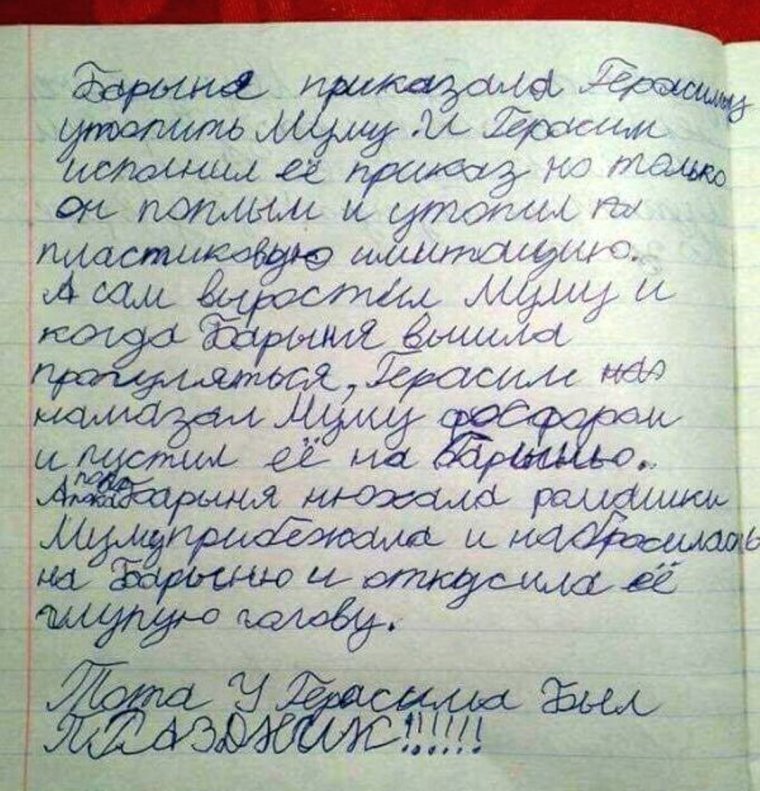 Барыня приказала Герасиму
утопить Муму. И Герасим
исполнил её приказ но только
он поплым и утопил
пластиковую имитацию.
А сам выростил Муму и
когда Барыня вышла
прогуляться, Герасим
намазал Муму фосфаром
и пустил её на Барыню.
А пока Барыня нюхала ромашки
Муму прибежала и набросилась
на Барыню и откусила её
глупую голову.
Тота У Герасима Был
ПРАЗДНИК!!!!!!